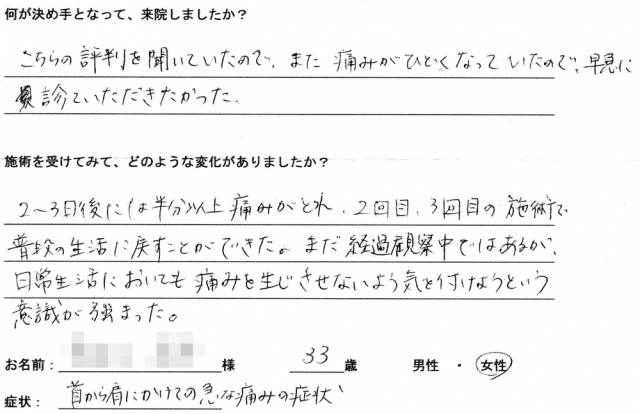 何が決め手となって、来院しましたか？
こちらの評判を聞いていたので、また痛みがひどくなっていたので、早急に
診ていただきたかった。
施術を受けてみて、どのような変化がありましたか？
2～3日後には半分以上痛みがとれ、2回目、3回目の施術で
普段の生活に戻すことができた。まだ経過観察中ではあるが、
日常生活においても痛みを生じさせないよう気を付けようという
意識が強まった。
お名前： 様 33 歳 男性 ・ 女性
症状： 首から肩にかけての急な痛みの症状